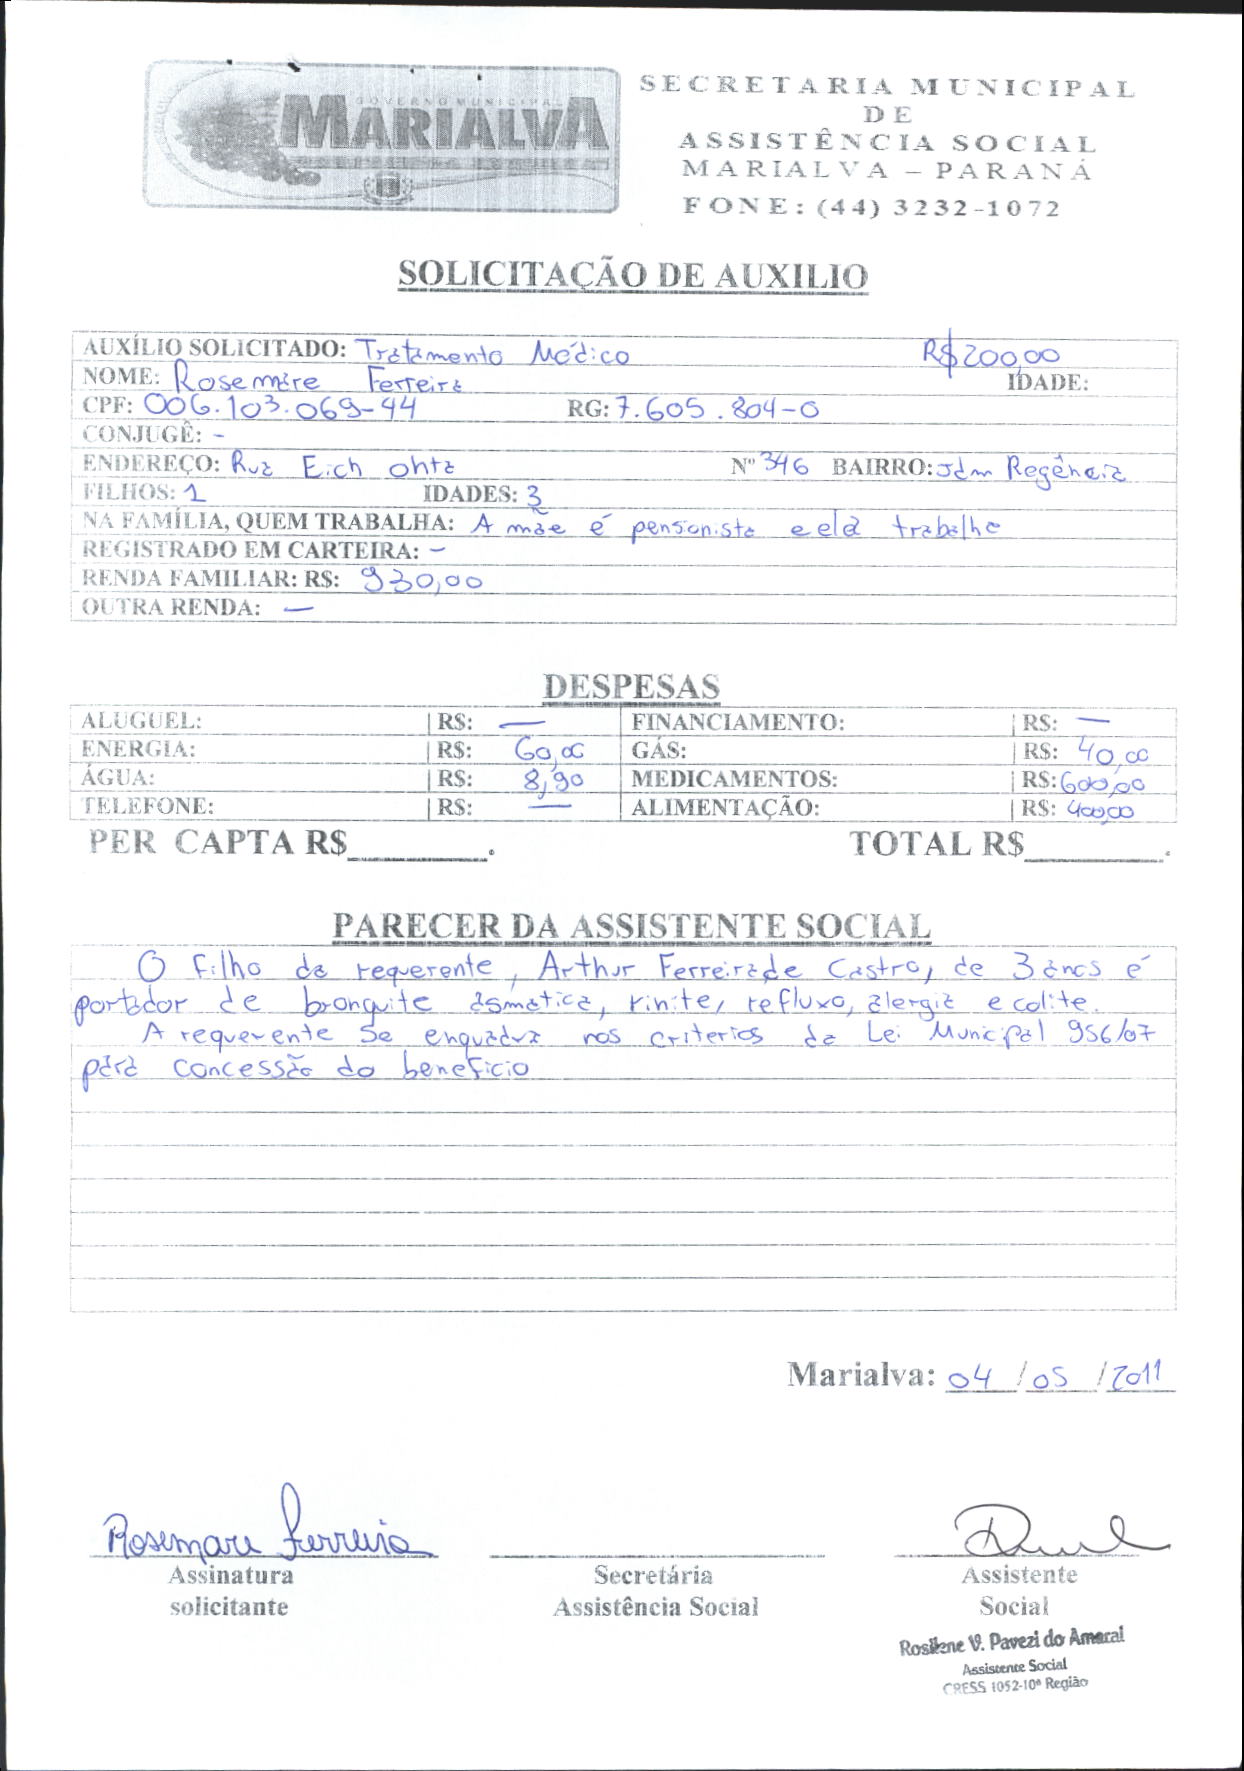 GOVERNO MUNICIPAL
MARIALVA
SECRETARIA MUNICIPAL
DE
ASSISTÊNCIA SOCIAL
MARIALVA – PARANÁ
FONE: (44) 3232-1072
SOLICITAÇÃO DE AUXILIO
AUXÍLIO SOLICITADO: Tratamento Médico R$200,00
NOME: Rosemare Ferreira IDADE:
CPF: 006.103.069-44 RG: 7.605.804-0
CONJUGÊ: -
ENDEREÇO: Rua Eich ohta Nº 346 BAIRRO: Jdm Regência
FILHOS: 1 IDADES: 3
NA FAMÍLIA, QUEM TRABALHA: A mãe é pensionista e ela trabalha
REGISTRADO EM CARTEIRA: -
RENDA FAMILIAR: R$: 930,00
OUTRA RENDA: —
DESPESAS
ALUGUEL: R$: — FINANCIAMENTO: R$: —
ENERGIA: R$: 60,00 GÁS: R$: 40,00
ÁGUA: R$: 8,90 MEDICAMENTOS: R$: 600,00
TELEFONE: R$: — ALIMENTAÇÃO: R$: 400,00
PER CAPTA R$________. TOTAL R$________.
PARECER DA ASSISTENTE SOCIAL
O filho da requerente, Arthur Ferreira de Castro, de 3 anos é
portador de bronquite asmatica, rinite, refluxo, alergia e colite.
A requerente se enquadra nos criterios da Lei Municipal 956/07
para concessão do beneficio
Marialva: 04 / 05 / 2011
Rosemare Ferreira
Assinatura Secretária Assistente
solicitante Assistência Social Social
Rosilene V. Pavezi do Amaral
Assistente Social
CRESS 1052-10ª Região